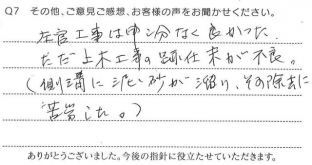 Q7 その他、ご意見ご感想、お客様の声をお聞かせください。
左官工事は申し分なく良かった。
ただ土木工事の跡仕末が不良。
(側溝に泥、砂が溜り、その除去に
苦労した。)
ありがとうございました。今後の指針に役立たせていただきます。